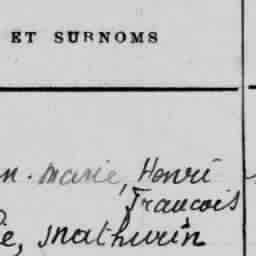 ET SURNOMS
n. marie, Henri
Francois
e, Mathurin